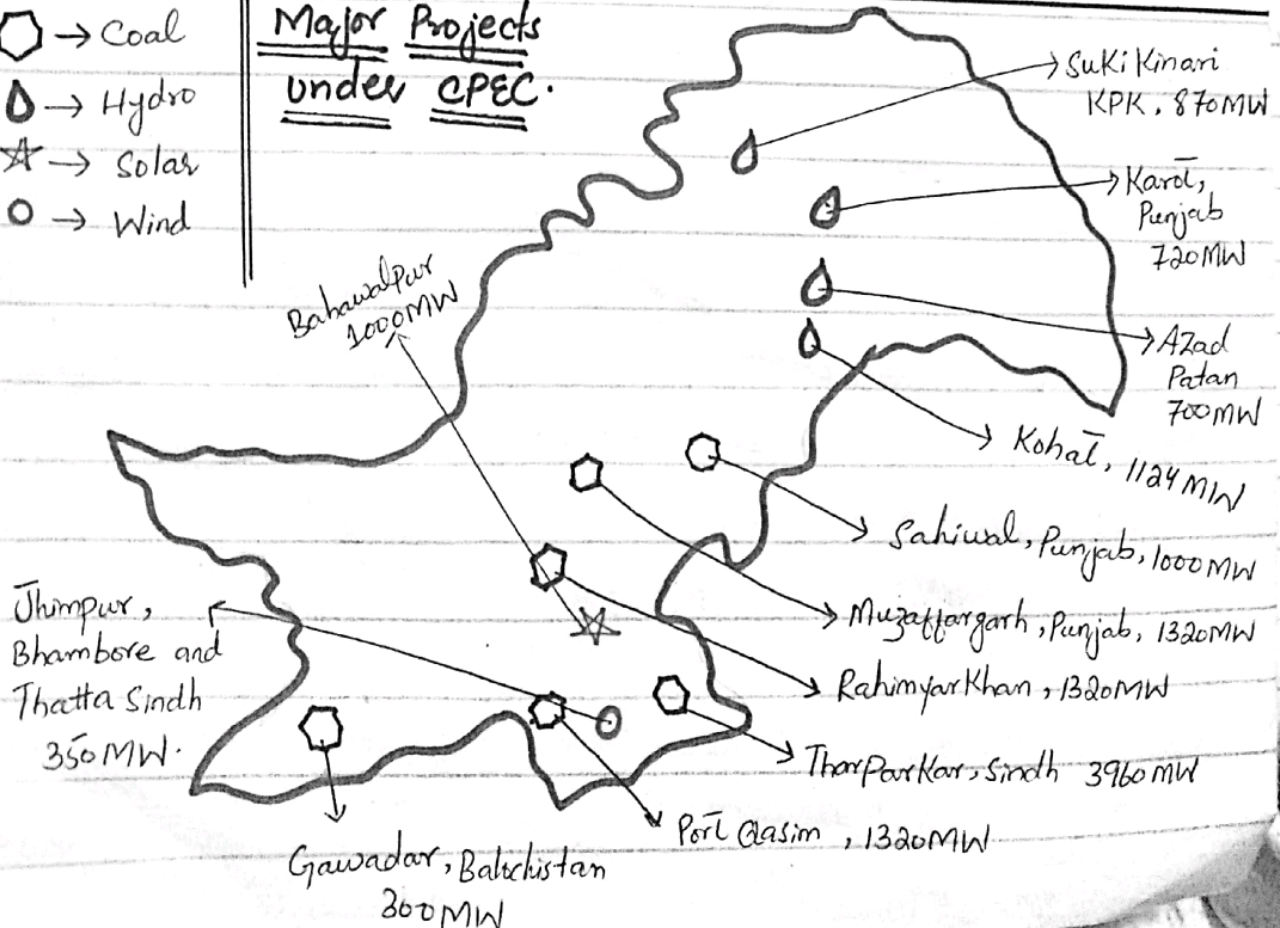 → Coal
→ Hydro
→ Solar
→ Wind
Major Projects
under CPEC.
Suki Kinari
KPK, 870MW
Karot,
Punjab
720MW
Azad
Patan
700MW
Kohat, 1124MW
Bahawalpur
1000MW
Sahiwal, Punjab, 1000MW
Muzaffargarh, Punjab, 1320MW
RahimyarKhan, 1320MW
Tharparkar, Sindh 3960MW
Port Qasim, 1320MW
Jhimpur,
Bhambore and
Thatta Sindh
350MW.
Gawadar, Balochistan
300MW